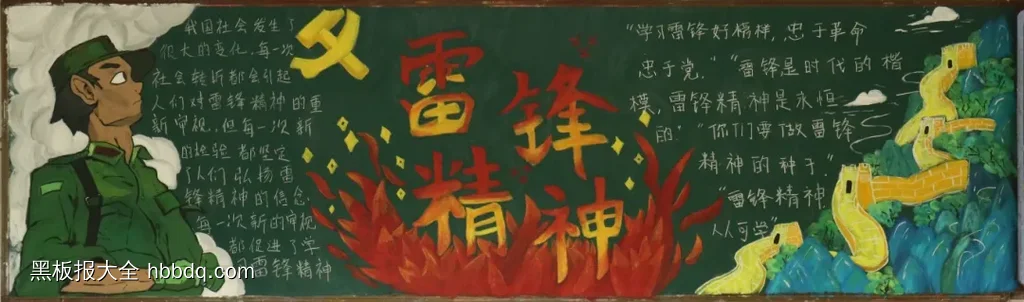 我国社会发生了
很大的变化,每一次
社会转折都会引起
人们对雷锋精神的重
新审视,但每一次新
的检验都坚定
了人们弘扬雷
锋精神的信念,
每一次新的审视
都促进了学
习雷锋精神
雷锋
精神
“学习雷锋好榜样,忠于革命
忠于党,”“雷锋是时代的楷
模,雷锋精神是永恒
的”“你们要做雷锋
精神的种子”
“雷锋精神
人人可学”
黑板报大全 hbbdq.com